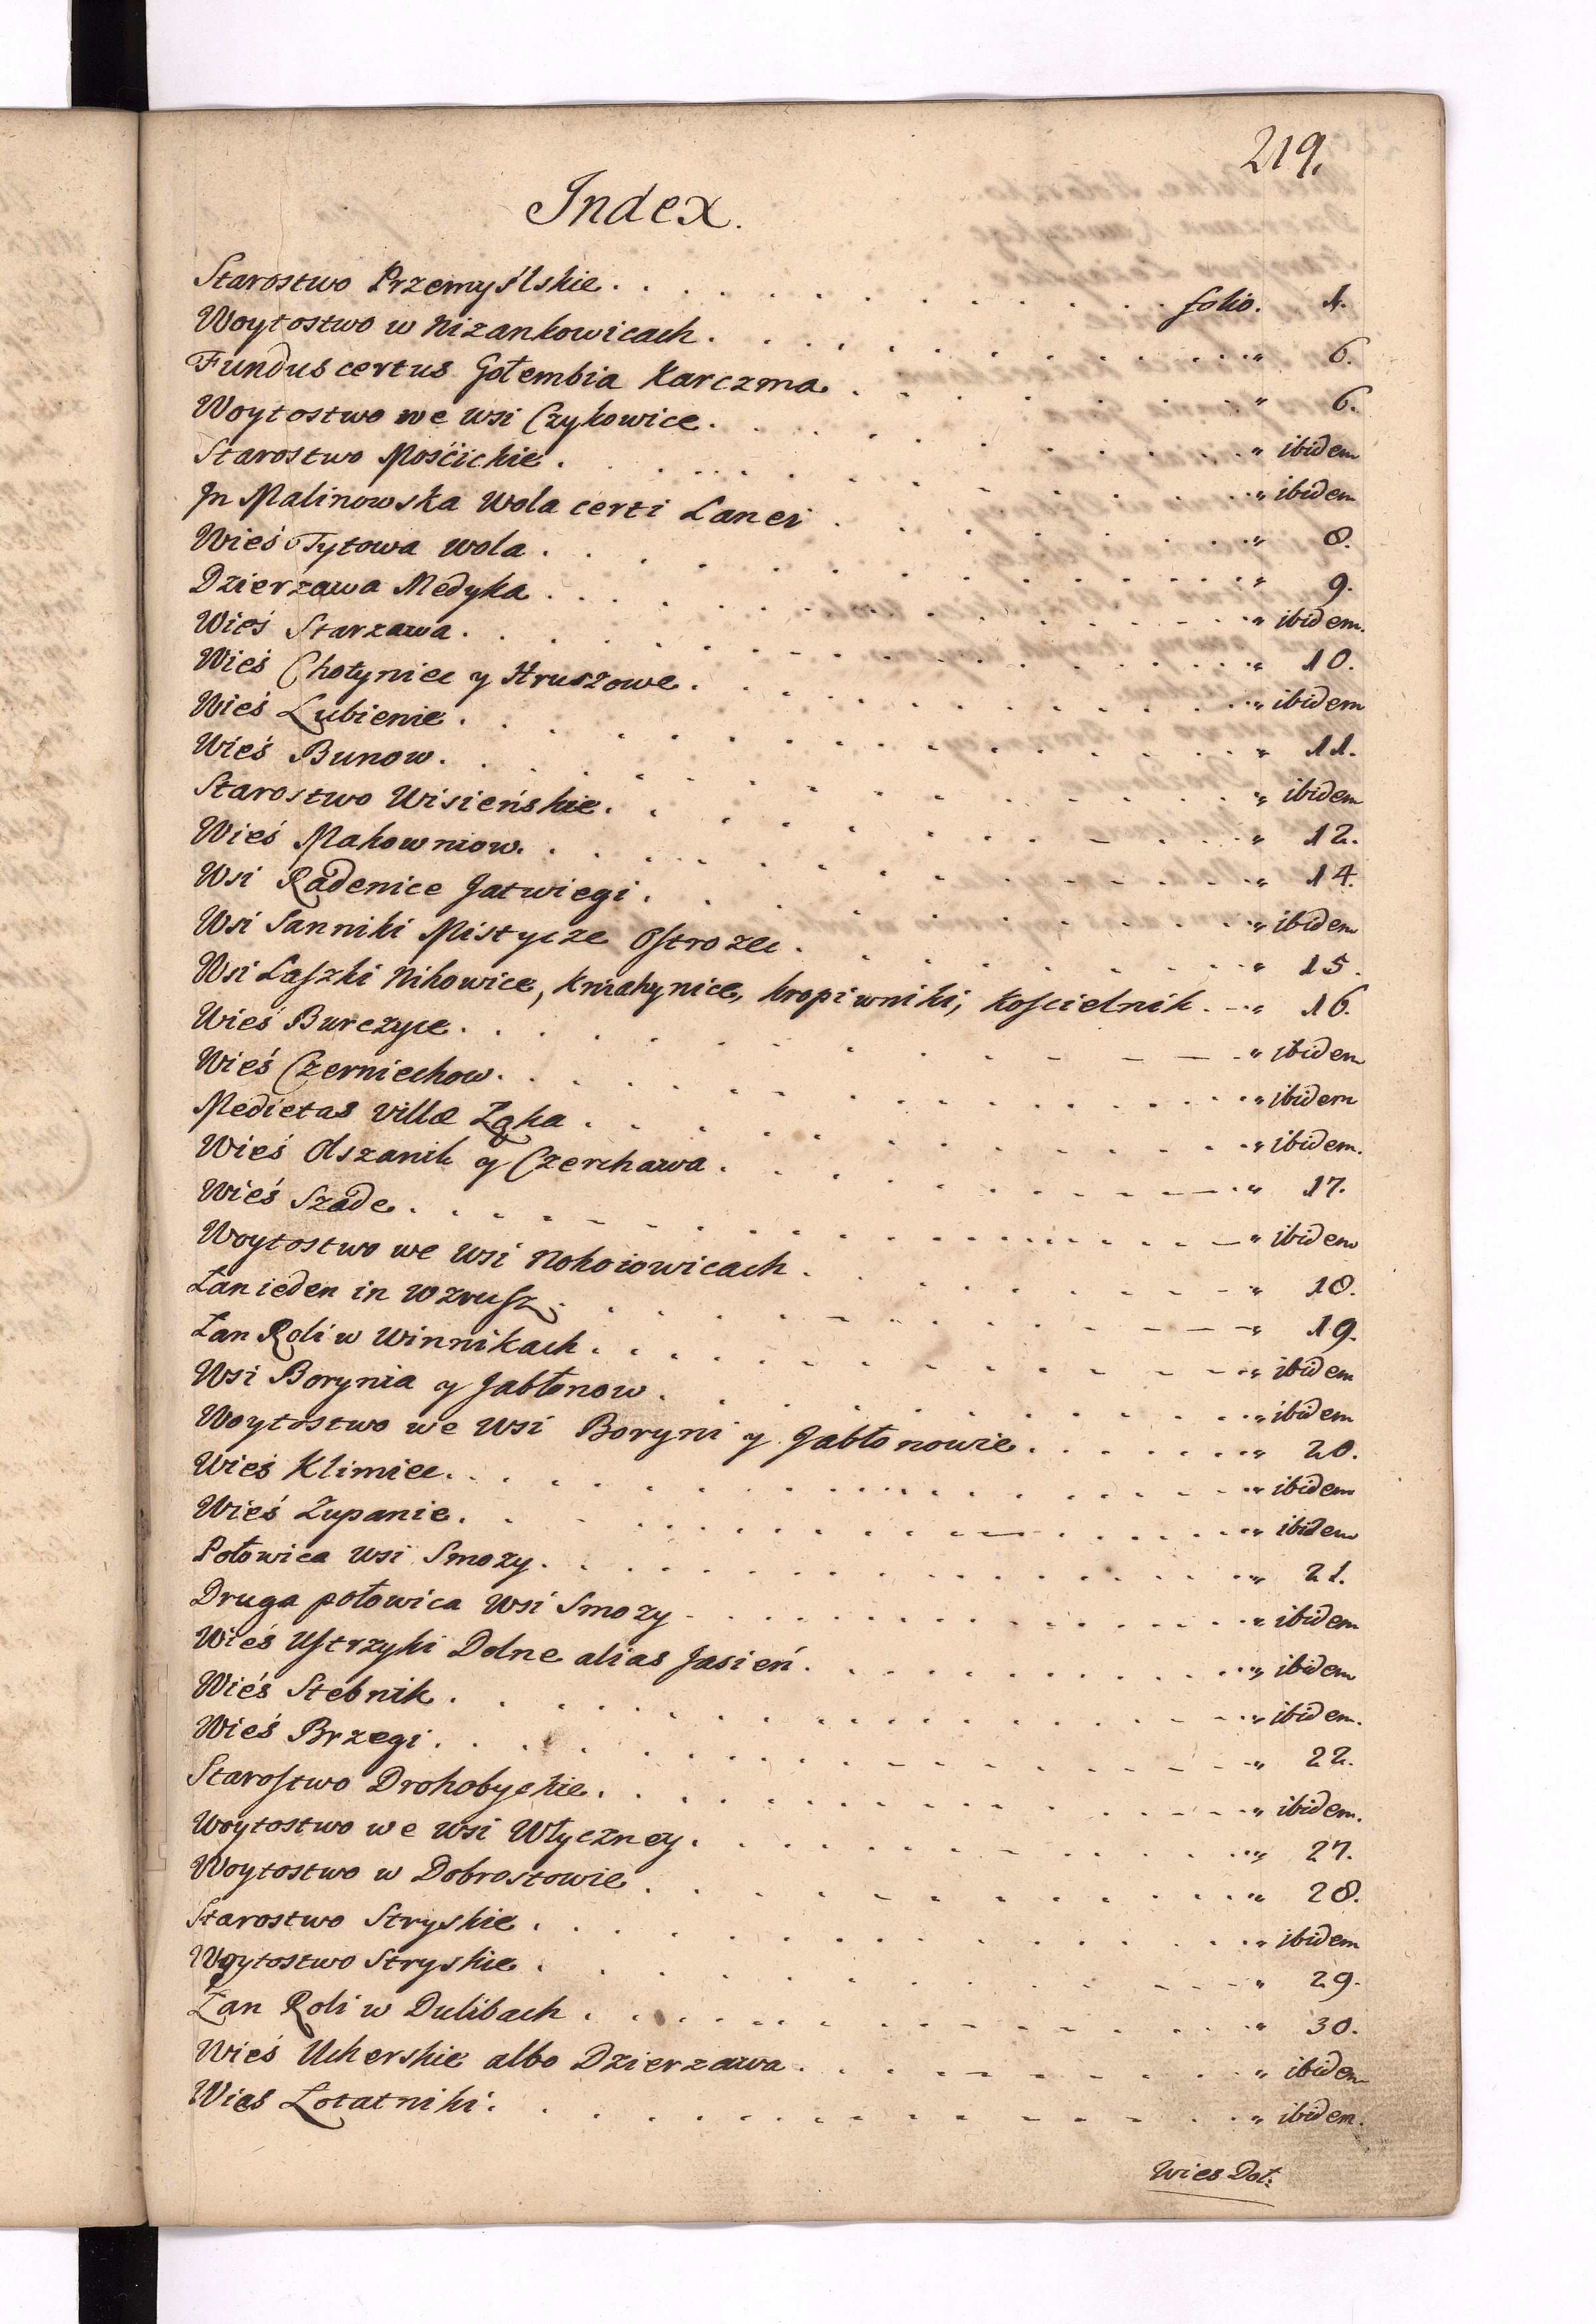 219.
Index.
Starostwo Przemyślskie . . . . . . . . . . folio. 1.
Woytostwo w Nizankowicach . . . . . . . . . . „ 6.
Fundus certus Gołembia Karczma . . . . . . . . . . „ 6.
Woytostwo we wsi Czykowice . . . . . . . . . . „ ibidem
Starostwo Mościckie . . . . . . . . . . „ ibidem
In Malinowska Wola certi Lanei . . . . . . . . . . „ 8.
Wieś Tytowa wola . . . . . . . . . . „ 9.
Dzierzawa Medyka . . . . . . . . . . „ ibidem.
Wieś Starzawa . . . . . . . . . . „ 10.
Wieś Chotynice y Hruszowe . . . . . . . . . . „ ibidem
Wieś Lubienie . . . . . . . . . . „ 11.
Wieś Bunow . . . . . . . . . . „ ibidem
Starostwo Wisieńskie . . . . . . . . . . „ 12.
Wieś Makowniow . . . . . . . . . . „ 14.
Wsi Radenice Jatwiegi . . . . . . . . . . „ ibidem
Wsi Sanniki Mistycze Ostrozec . . . . . . . . . . „ 15.
Wsi Laszki Nikowice, Kniahynice, kropiwniki, Koscielnik . „ 16.
Wieś Burczyce . . . . . . . . . . „ ibidem
Wieś Czerniechow . . . . . . . . . . „ ibidem
Medietas villæ Łąka . . . . . . . . . . „ ibidem.
Wieś Olszanik y Czerchawa . . . . . . . . . . „ 17.
Wieś Szade . . . . . . . . . . „ ibidem
Woytostwo we wsi Nohoiowicach . . . . . . . . . . „ 18.
Łan ieden in Wzrusz . . . . . . . . . . „ 19.
Łan Roli w Winnikach . . . . . . . . . . „ ibidem
Wsi Borynia y Jabłonow . . . . . . . . . . „ ibidem
Woytostwo we wsi Boryni y Jabłonowie . . . . . . . „ 20.
Wieś Klimiec . . . . . . . . . . „ ibidem
Wieś Zupanie . . . . . . . . . . „ ibidem
Połowica wsi Smozy . . . . . . . . . . „ 21.
Druga połowica wsi Smozy . . . . . . . . . . „ ibidem
Wieś Ustrzyki Dolne alias Jasień . . . . . . . . . . „ ibidem
Wieś Stebnik . . . . . . . . . . „ ibidem.
Wieś Brzegi . . . . . . . . . . „ 22.
Starostwo Drohobyckie . . . . . . . . . . „ ibidem.
Woytostwo we wsi Włyczney . . . . . . . . . . „ 27.
Woytostwo w Dobrostowie . . . . . . . . . . „ 28.
Starostwo Stryskie . . . . . . . . . . „ ibidem
Woytostwo Stryskie . . . . . . . . . . „ 29.
Łan Roli w Dulibach . . . . . . . . . . „ 30.
Wieś Uherskie albo Dzierzawa . . . . . . . . . . „ ibidem
Wies Lotatniki . . . . . . . . . . „ ibidem.
Wies Doł: